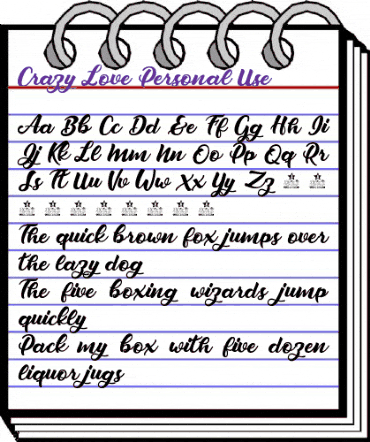 Crazy Love Personal Use
Aa Bb Cc Dd Ee Ff Gg Hh Ii
Jj Kk Ll Mm Nn Oo Pp Qq Rr
Ss Tt Uu Vv Ww Xx Yy Zz
The quick brown fox jumps over
the lazy dog
The five boxing wizards jump
quickly
Pack my box with five dozen
liquor jugs